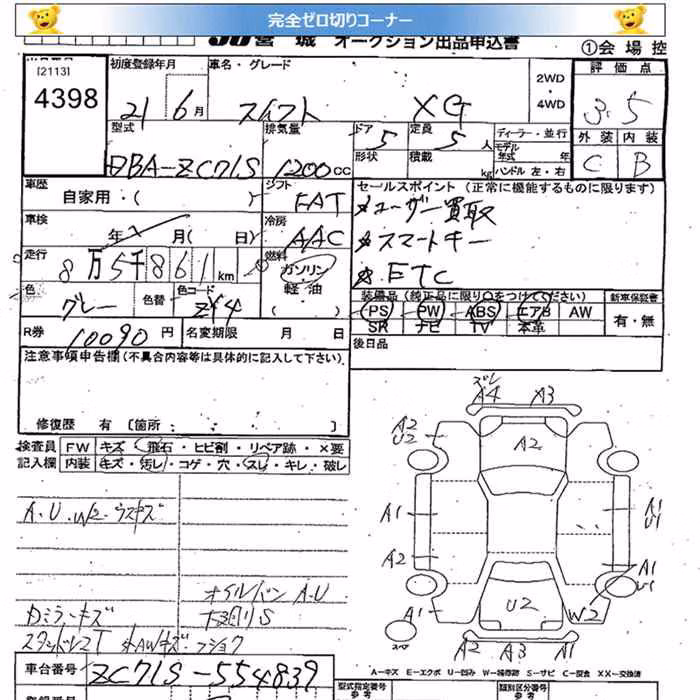 完全ゼロ切りコーナー
JU宮城 オークション出品申込書
①会場控
[2113]
4398
初度登録年月 21 6月
車名・グレード スイフト XG
2WD・4WD
評価点 3.5
外装 C 内装 B
型式 DBA-ZC71S
排気量 1200cc
ドア 5 形状
定員 5人 積載 kg
ディーラー・並行
モデル年式 年
ハンドル 左・右
車歴 自家用・( )
シフト FAT
車検 年 月( 日)
冷房 AAC
走行 8万5千861km
燃料 ガソリン・軽油
色 グレー 色替 色コード ZY4
R券 10090円 名変期限 月 日
セールスポイント(正常に機能するものに限ります)
★ユーザー買取
★スマートキー
★ETC
装備品(純正品に限り○をつけてください)
PS PW ABS エアB AW
SR ナビ TV 本革
新車保証書 有・無
後日品
注意事項申告欄(不具合内容等は具体的に記入して下さい)
修復歴 有[箇所: ]
検査員記入欄
FW キズ・飛石・ヒビ割・リペア跡・×要
内装 キズ・汚レ・コゲ・穴・スレ・キレ・破レ
A.U.W2.ウスキズ
オイルパン A.U
下廻りS
カミラーキズ
ズレ
A4 A3
A2 U2
A2
A1
A1 U1
A2
A1 U1
A1
U2
W2
スペア
A2 A3 A1
車台番号 ZC71S-554839
A-キズ E-エクボ U-凹み W-補修跡 S-サビ C-腐食 XX-交換済
型式指定番号 参考
類別区分番号 参考
登録番号